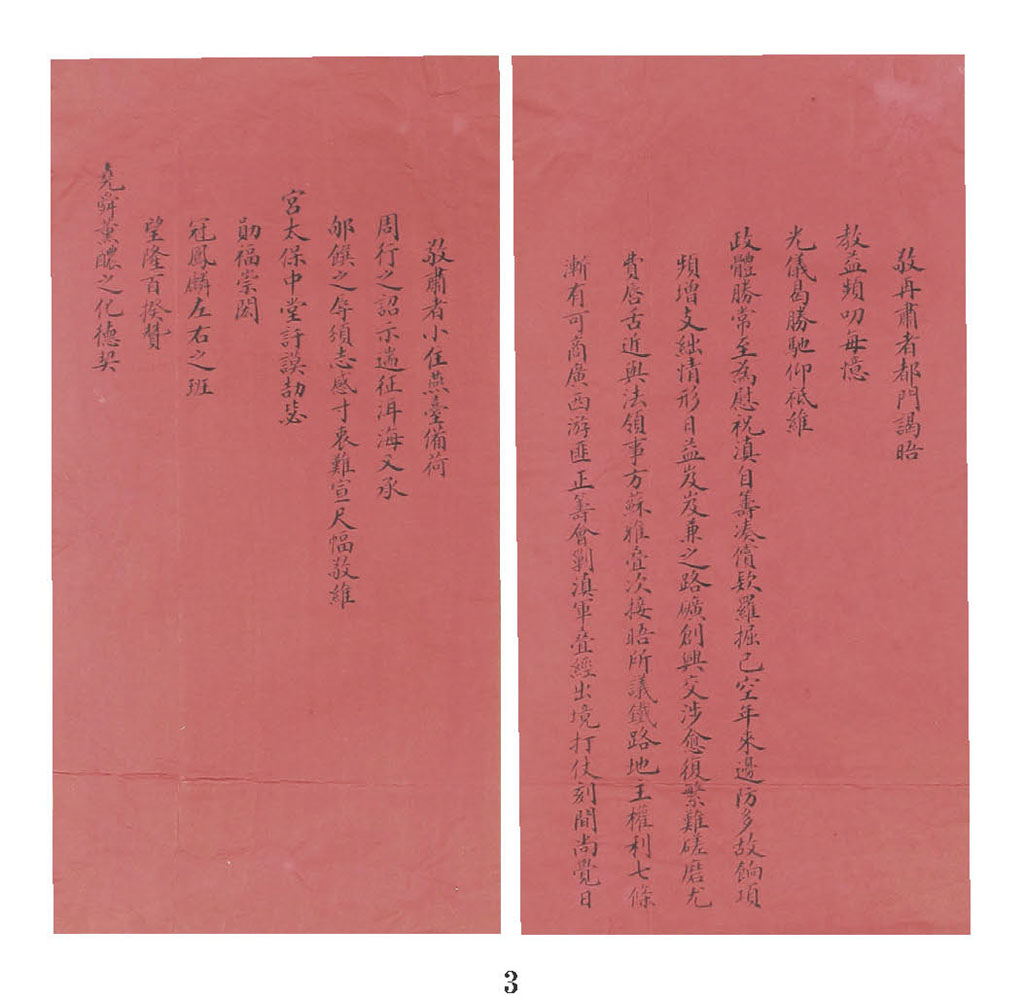 敬再肅者都門謁晤
教益頻叨每憶
光儀曷勝馳仰祗維
政體勝常至為慰祝滇自籌湊償款羅掘已空年來邊防多故餉項
頻增支絀情形日益岌岌兼之路礦創興交涉愈復繁難磋磨尤
費唇舌近與法領事方蘇雅疊次接晤所議鐵路地主權利七條
漸有可商廣西游匪正籌會剿滇軍疊經出境打仗刻間尚覺日
敬肅者小住燕臺備荷
周行之詔示遄征洱海又承
郇饌之辱頒志感寸衷難宣尺幅敬維
宮太保中堂訏謨劼毖
勛福崇閎
冠鳳麟左右之班
望隆百揆贊
堯舜薰醲之化德契
3